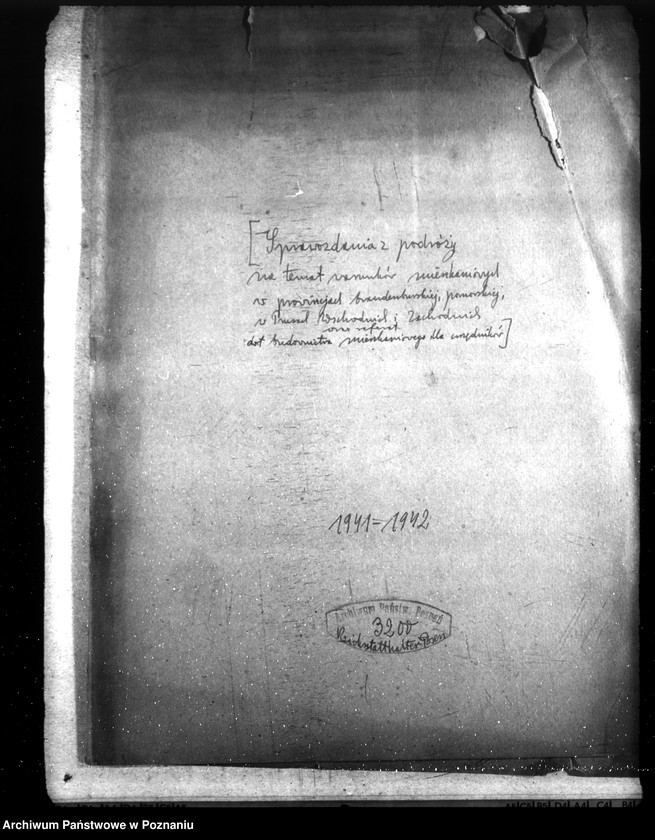 [Sprawozdania z podróży
na temat warunków mieszkaniowych
w prowincjach brandenburskiej, pomorskiej,
w Prusach Wschodnich i Zachodnich
oraz referat
dot budownictwa mieszkaniowego dla urzędników]
1941-1942
Archiwum Państw. Poznań
3200
Reichsstatthalter Posen
Archiwum Państwowe w Poznaniu